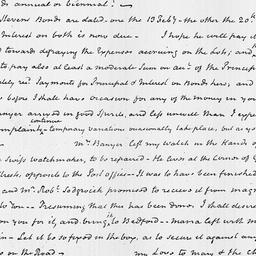 ds annual or biennial? —
Stevens Bonds are dated — one the 13 Feby — the other the 20th
Interest on both is now due — I hope he will pay it
towards defraying the Expenses accruing on the Lots, and
to pay also at least a moderate Sum on acct of the Princip
Payment for Principal & Interest on Bonds here, and
before I shall have occasion for any of the money in yo
arrived in good Spirits, and left unwell than I expe
complaints — temporary variations occasionally take place, but as yo
continue
Mr Banyer left my watch in the Hands of
a Swiss watchmaker, to be repaired — He lives at the Corner of
Streets, opposite to the Post office — It was to have been finished
and Mr Robt Sedgwick promised to receive it from
to You — Presuming that this has been done. I shall desire
you for it, and bring it to Bedford —
Let it be so fixed in the box, as to secure it against any
on the Road — my Love to Mary & the ch